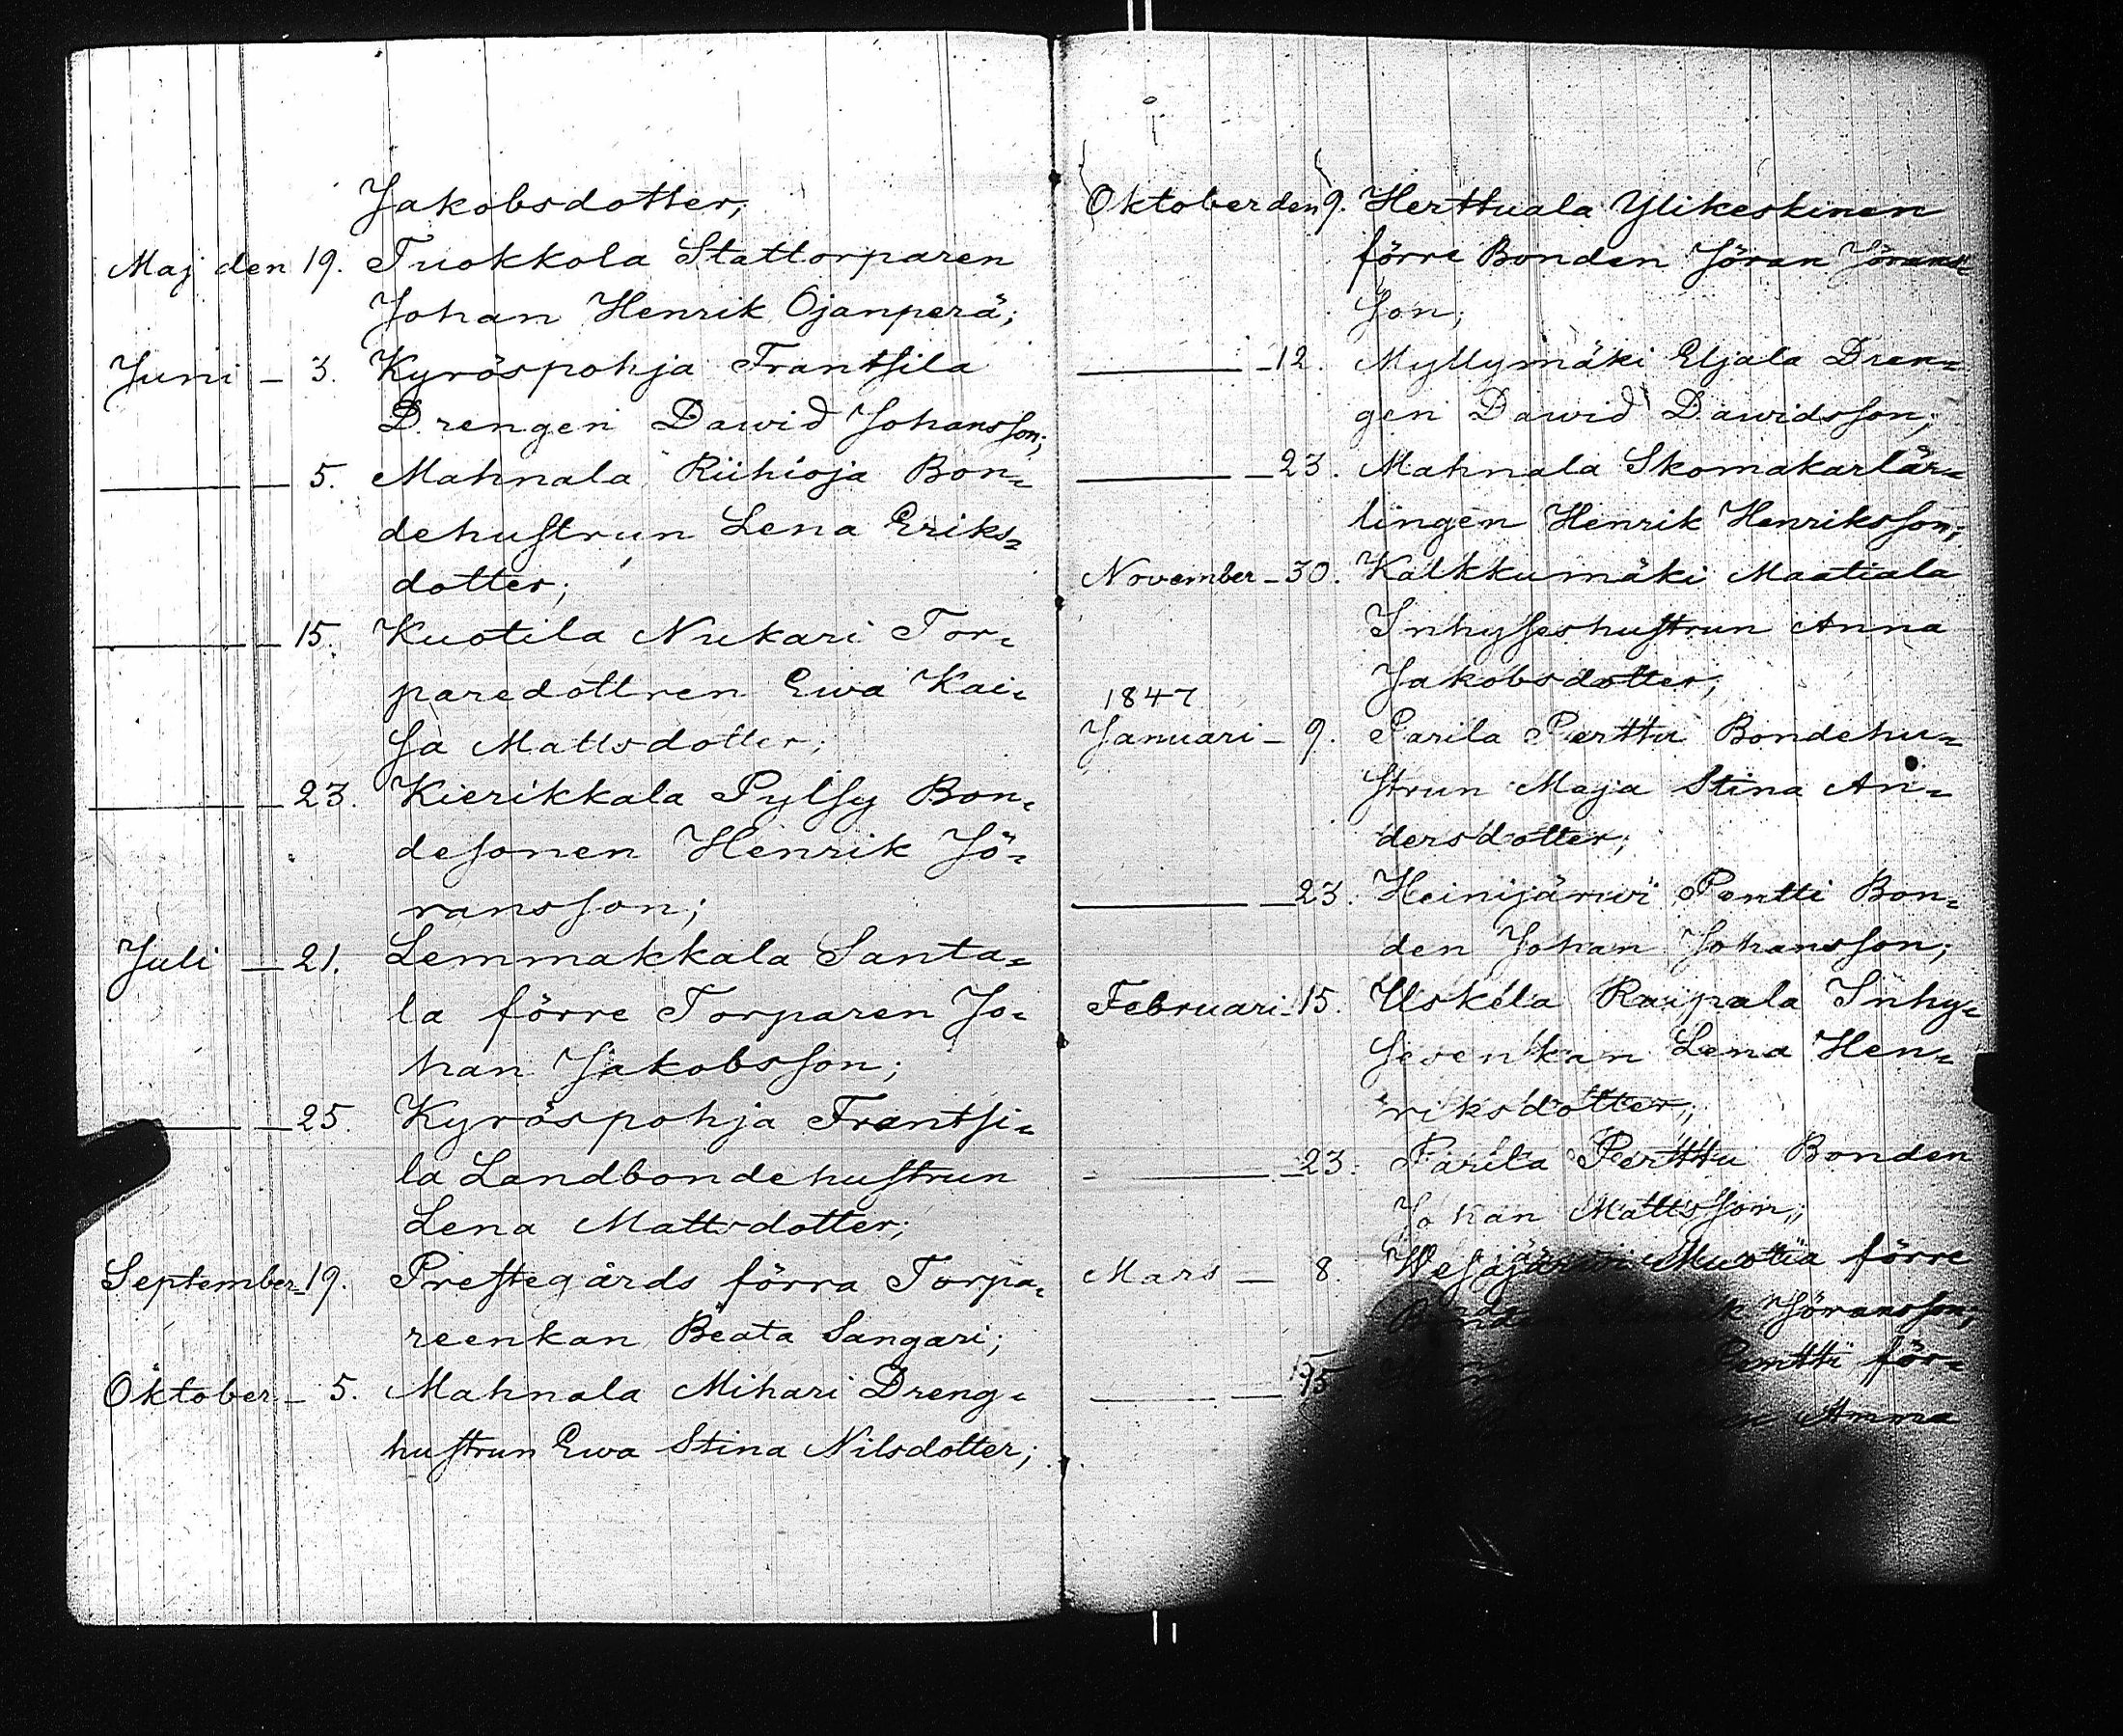 Jakobsdotter;
Maj den 19. Tuokkola Stattorparen
Johan Henrik Ojanperä;
Juni — 3. Kyröspohja Frantsila
Drengen Dawid Johansson;
— 5. Mahnala Riihioja Bon=
dehustrun Lena Eriks=
dotter;
— 15. Kuotila Nukari Tor=
paredottren Ewa Kai=
sa Mattsdotter;
— 23. Kierikkala Pylsy Bon=
desonen Henrik Jö=
ransson;
Juli — 21. Lemmakkala Santa=
la förre Torparen Jo=
han Jakobsson;
— 25. Kyröspohja Frantsi=
la Landbondehustrun
Lena Mattsdotter;
September 19. Prestegårds förra Torpa=
reenkan Beata Sangari;
Oktober — 5. Mahnala Mihari Dreng=
hustrun Ewa Stina Nilsdotter;
Oktober den 9. Herttuala Ylikeskinen
förre Bonden Jöran Jörans=
son;
— 12. Myllymäki Eljala Dren=
gen Dawid Dawidsson;
— 23. Mahnala Skomakarlär=
lingen Henrik Henriksson;
November — 30. Kalkkumäki Maatiala
Inhyseshustrun Anna
Jakobsdotter;
1847
Januari — 9. Parila Perttu Bondehu=
strun Maja Stina An=
dersdotter;
— 23. Heinijärwi Pentti Bon=
den Johan Johansson;
Februari 15. Uskela Raipala Inhy=
sesenkan Lena Hen=
riksdotter;
— 23. Parila Perttu Bonden
Johan Mattsson;
Mars — 8. Wesajärwi Muotia förre
Jöransson;
— 15 Pentti för=
Anna